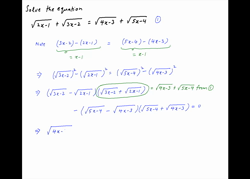 Solve the equation
√2x-1 + √3x-2 = √4x-3 + √5x-4 ①
Note (3x-2)-(2x-1) = (5x-4)-(4x-3)
= x-1 = x-1
⇒ (√3x-2)² - (√2x-1)² = (√5x-4)² - (√4x-3)²
⇒ (√3x-2 - √2x-1)(√3x-2 + √2x-1) = √4x-3 + √5x-4 from ①
- (√5x-4 - √4x-3)(√5x-4 + √4x-3) = 0
⇒ √4x-